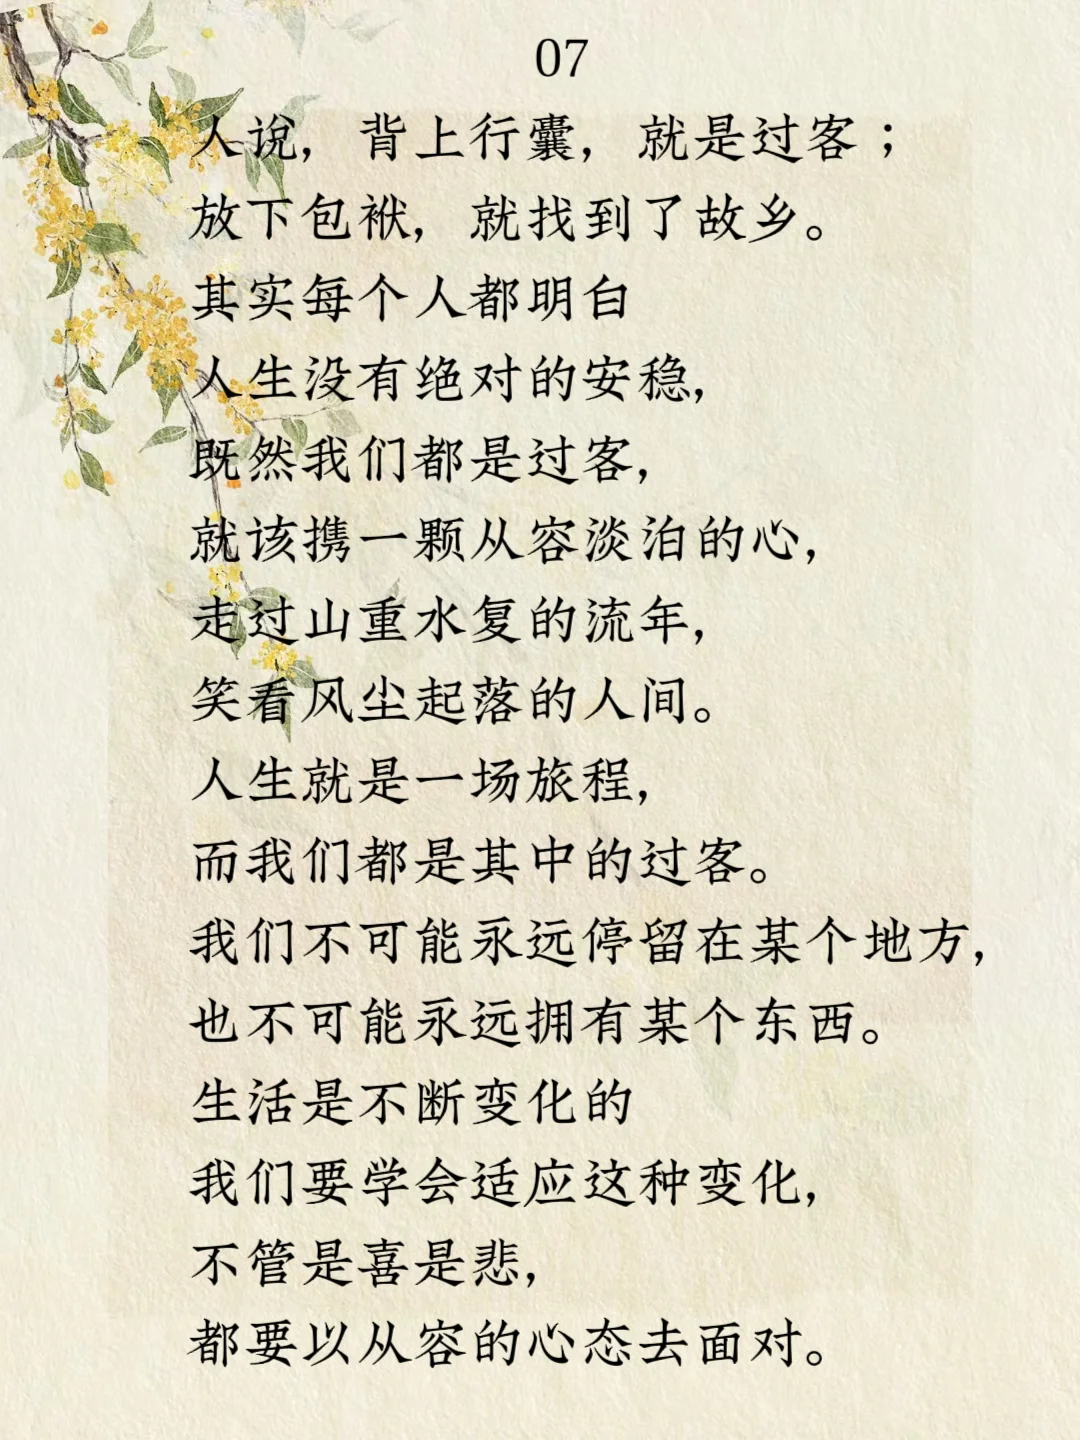 07
人说，背上行囊，就是过客；
放下包袱，就找到了故乡。
其实每个人都明白
人生没有绝对的安稳，
既然我们都是过客，
就该携一颗从容淡泊的心，
走过山重水复的流年，
笑看风尘起落的人间。
人生就是一场旅程，
而我们都是其中的过客。
我们不可能永远停留在某个地方，
也不可能永远拥有某个东西。
生活是不断变化的
我们要学会适应这种变化，
不管是喜是悲，
都要以从容的心态去面对。